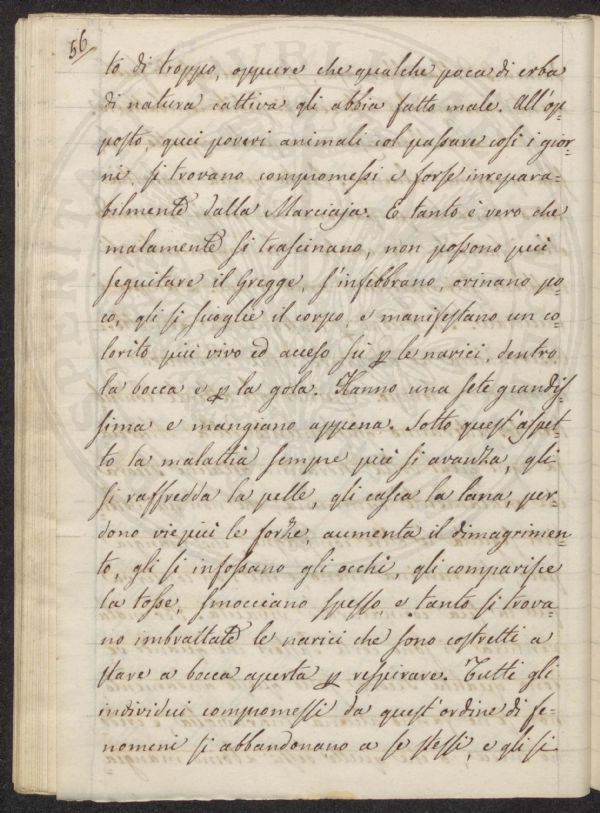 56
to di troppo, oppure che qualche poca di erba
di natura cattiva gli abbia fatto male. All'op=
posto, quei poveri animali col passare così i gior=
ni, si trovano compromessi e forse inrepara=
bilmente dalla Marciaja. E tanto è vero che
malamente si trascinano, non possono più
seguitare il Gregge, s'infebbrano, orinano po=
co, gli si scioglie il corpo, e manifestano un co=
lorito più vivo ed acceso sù p le narici, dentro
la bocca e p la gola. Hanno una sete grandis=
sima e mangiano appena. Sotto quest'aspet=
to la malattia sempre più si avanza, gli
si raffredda la pelle, gli casca la lana, per=
dono viepiù le forze, aumenta il dimagrimen=
to, gli si infossano gli occhi, gli comparisce
la tosse, smocciano spesso, e tanto si trova=
no imbrattate le narici che sono costretti a
stare a bocca aperta p respirare. Tutti gli
individui compromessi da quest'ordine di fe=
nomeni si abbandonano a se stessi, e gli si